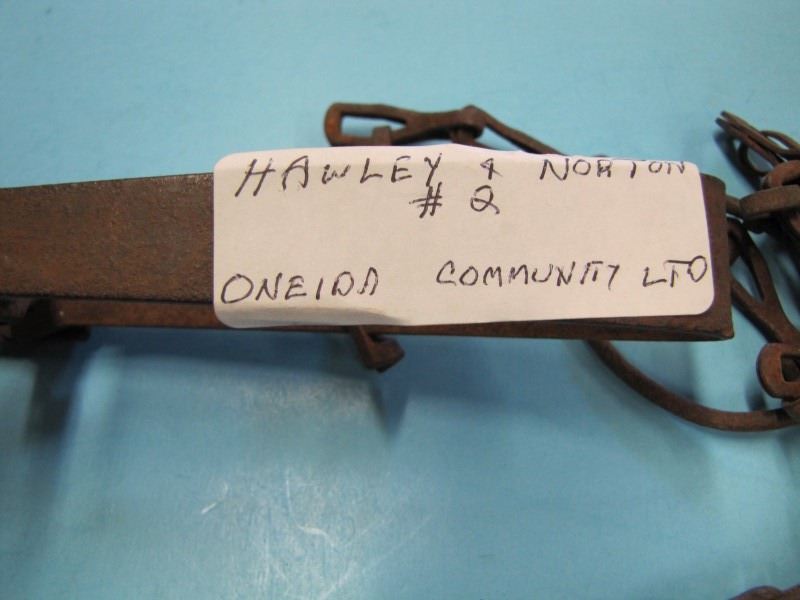 HAWLEY & NORTON
# 2
ONEIDA COMMUNITY LTD